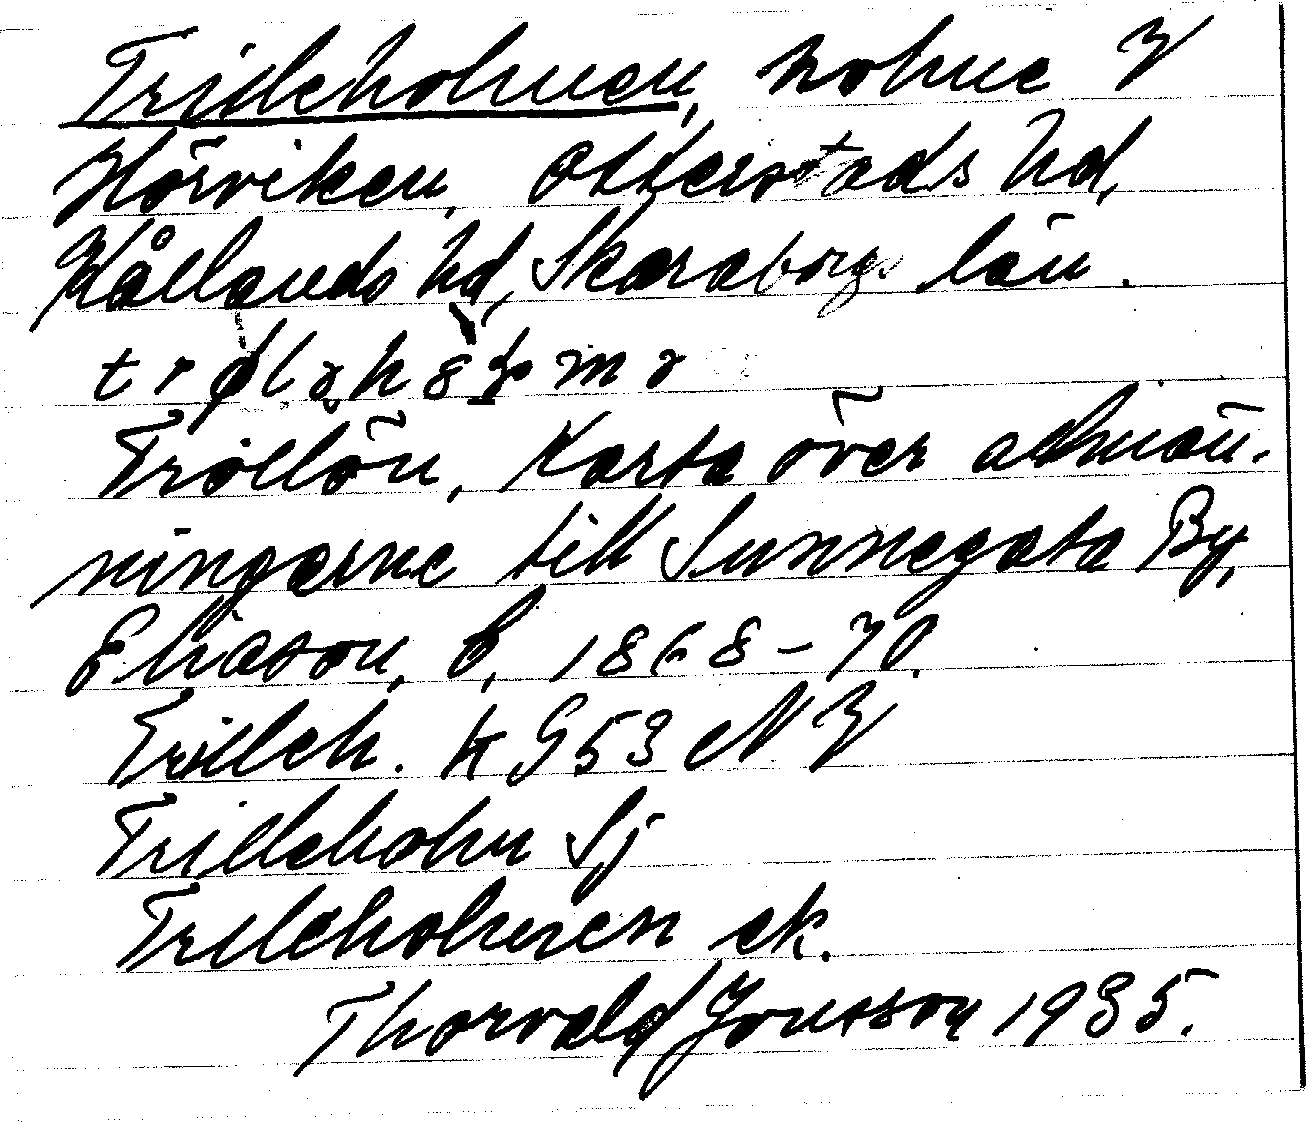 Trilleholmen, holme i
Hörviken, Otterstads hd,
Kållands hd, Skaraborgs län.
Trollön, Karta över allmän-
ningarne till Sunnegata By,
Eliason, C, 1868-70.
Trilleh. k G53 NV
Trilleholm Sj
Trilleholmen ek.
Thorvald Jonsson 1935.